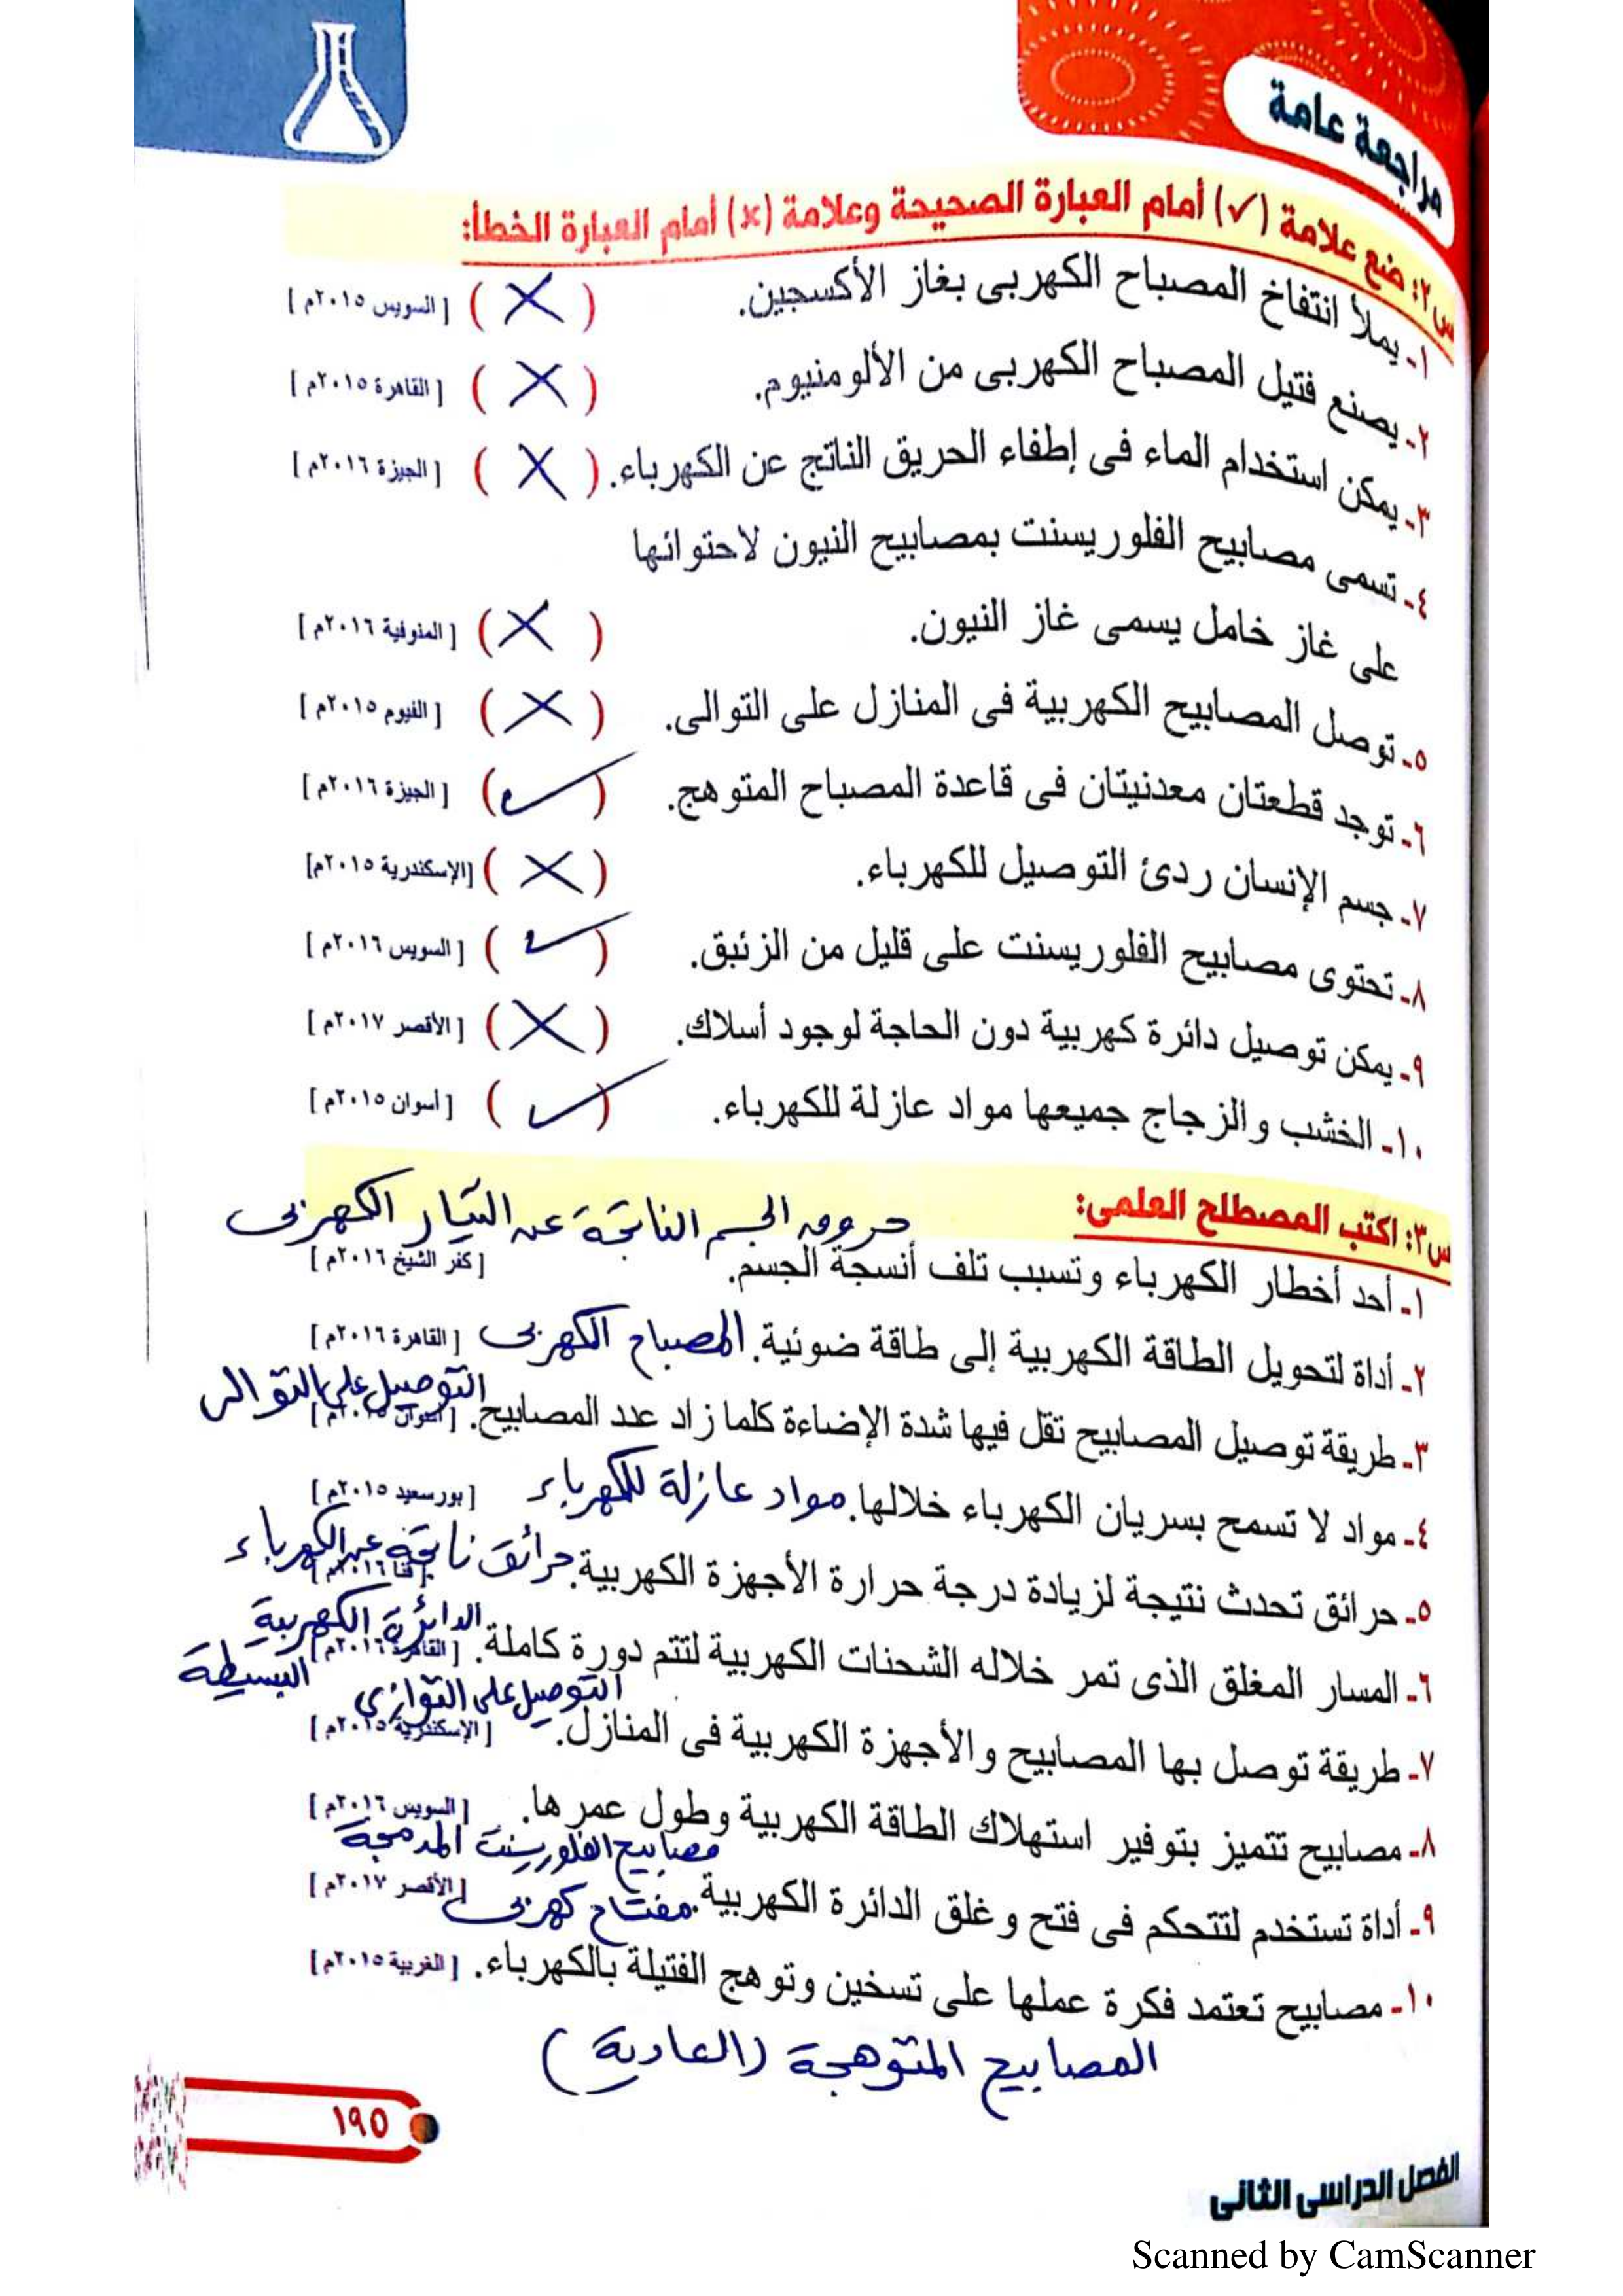 مراجعة عامة
س٢: ضع علامة (✓) أمام العبارة الصحيحة وعلامة (×) أمام العبارة الخطأ:
١- يملأ انتفاخ المصباح الكهربى بغاز الأكسجين. ( X ) [ السويس ٢٠١٥م ]
٢- يصنع فتيل المصباح الكهربى من الألومنيوم. ( X ) [ القاهرة ٢٠١٥م ]
٣- يمكن استخدام الماء فى إطفاء الحريق الناتج عن الكهرباء. ( X ) [ الجيزة ٢٠١٦م ]
٤- تسمى مصابيح الفلوريسنت بمصابيح النيون لاحتوائها
على غاز خامل يسمى غاز النيون. ( X ) [ المنوفية ٢٠١٦م ]
٥- توصل المصابيح الكهربية فى المنازل على التوالى. ( X ) [ الفيوم ٢٠١٥م ]
٦- توجد قطعتان معدنيتان فى قاعدة المصباح المتوهج. ( ✓ ) [ الجيزة ٢٠١٦م ]
٧- جسم الإنسان ردئ التوصيل للكهرباء. ( X ) [الإسكندرية ٢٠١٥م]
٨- تحتوى مصابيح الفلوريسنت على قليل من الزئبق. ( ✓ ) [ السويس ٢٠١٦م ]
٩- يمكن توصيل دائرة كهربية دون الحاجة لوجود أسلاك. ( X ) [ الأقصر ٢٠١٧م ]
١٠- الخشب والزجاج جميعها مواد عازلة للكهرباء. ( ✓ ) [ أسوان ٢٠١٥م ]
س٣: اكتب المصطلح العلمى:
حروق الجسم الناتجة عن التيار الكهربى
١- أحد أخطار الكهرباء وتسبب تلف أنسجة الجسم. [ كفر الشيخ ٢٠١٦م ]
٢- أداة لتحويل الطاقة الكهربية إلى طاقة ضوئية. المصباح الكهربى [ القاهرة ٢٠١٦م ]
التوصيل على التوالى
٣- طريقة توصيل المصابيح تقل فيها شدة الإضاءة كلما زاد عدد المصابيح. [ أسوان ٢٠١٥م ]
٤- مواد لا تسمح بسريان الكهرباء خلالها. مواد عازلة للكهرباء [ بورسعيد ٢٠١٥م ]
٥- حرائق تحدث نتيجة لزيادة درجة حرارة الأجهزة الكهربية. حرائق ناتجة عن الكهرباء [ قنا ٢٠١٦م ]
الدائرة الكهربية البسيطة
٦- المسار المغلق الذى تمر خلاله الشحنات الكهربية لتتم دورة كاملة. [ القاهرة ٢٠١٦م ]
التوصيل على التوازى
٧- طريقة توصل بها المصابيح والأجهزة الكهربية فى المنازل. [ الإسكندرية ٢٠١٥م ]
٨- مصابيح تتميز بتوفير استهلاك الطاقة الكهربية وطول عمرها. [ السويس ٢٠١٦م ]
مصابيح الفلوريسنت المدمجة
٩- أداة تستخدم لتتحكم فى فتح وغلق الدائرة الكهربية. مفتاح كهربى [ الأقصر ٢٠١٧م ]
١٠- مصابيح تعتمد فكرة عملها على تسخين وتوهج الفتيلة بالكهرباء. [ الغربية ٢٠١٥م ]
المصابيح المتوهجة (العادية)
١٩٥
الفصل الدراسى الثانى
Scanned by CamScanner